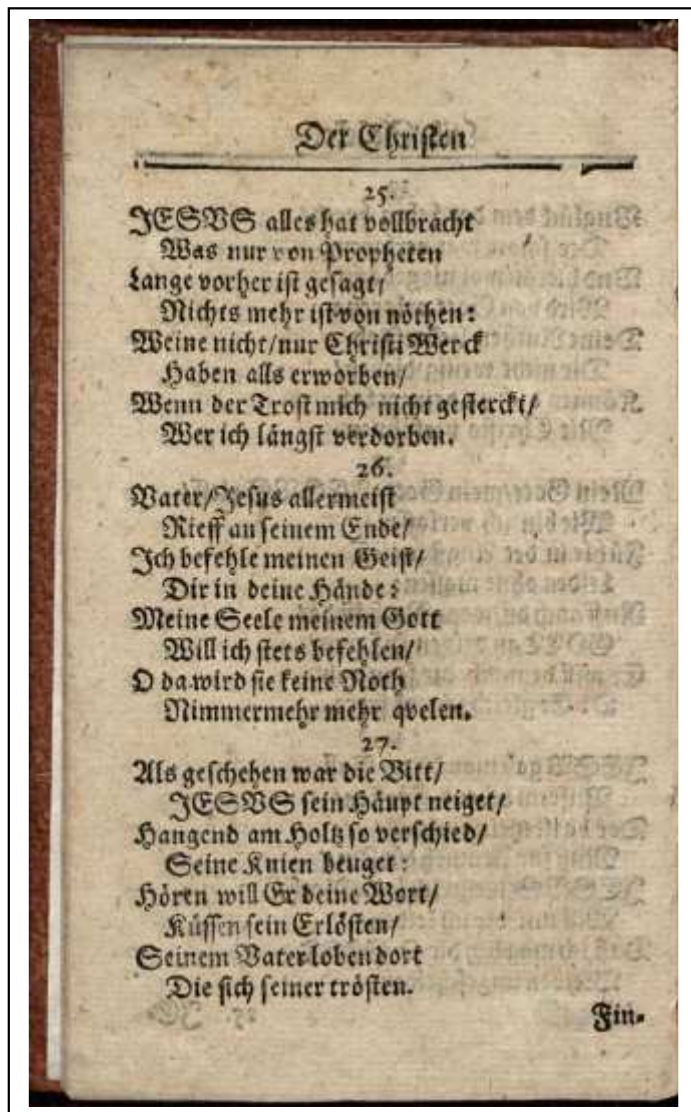 Der Christen
25.
JESVS alles hat vollbracht
Was nur von Propheten
Lange vorher ist gesagt/
Nichts mehr ist von nöthen:
Weine nicht/nur Christi Werck
Haben alls erworben/
Wenn der Trost mich nicht gesterckt/
Wer ich längst verdorben.
26.
Vater/Jesus allermeist
Rieff an seinem Ende/
Ich befehle meinen Geist/
Dir in deine Hände:
Meine Seele meinem Gott
Will ich stets befehlen/
O da wird sie keine Noth
Nimmermehr mehr qvelen.
27.
Als geschehen war die Bitt/
JESVS sein Häupt neiget/
Hangend am Holtz so verschied/
Seine Knien beuget:
Hören will Er deine Wort/
Küssen sein Erlösten/
Seinem Vater loben dort
Die sich seiner trösten.
Fin-